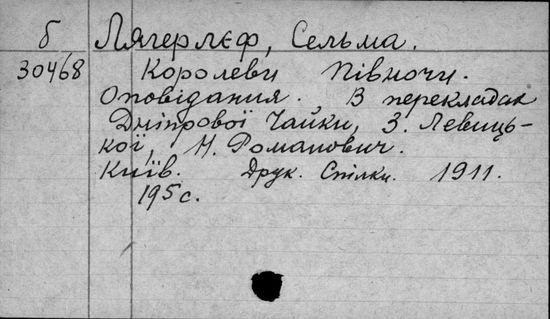 б Лягерлєф, Сельма.
30468 Королеви Півночи.
Оповідання. В перекладах
Дніпрової Чайки, З. Левиць-
кої, Н. Романович.
Київ. Друк. Спілки. 1911.
195 с.